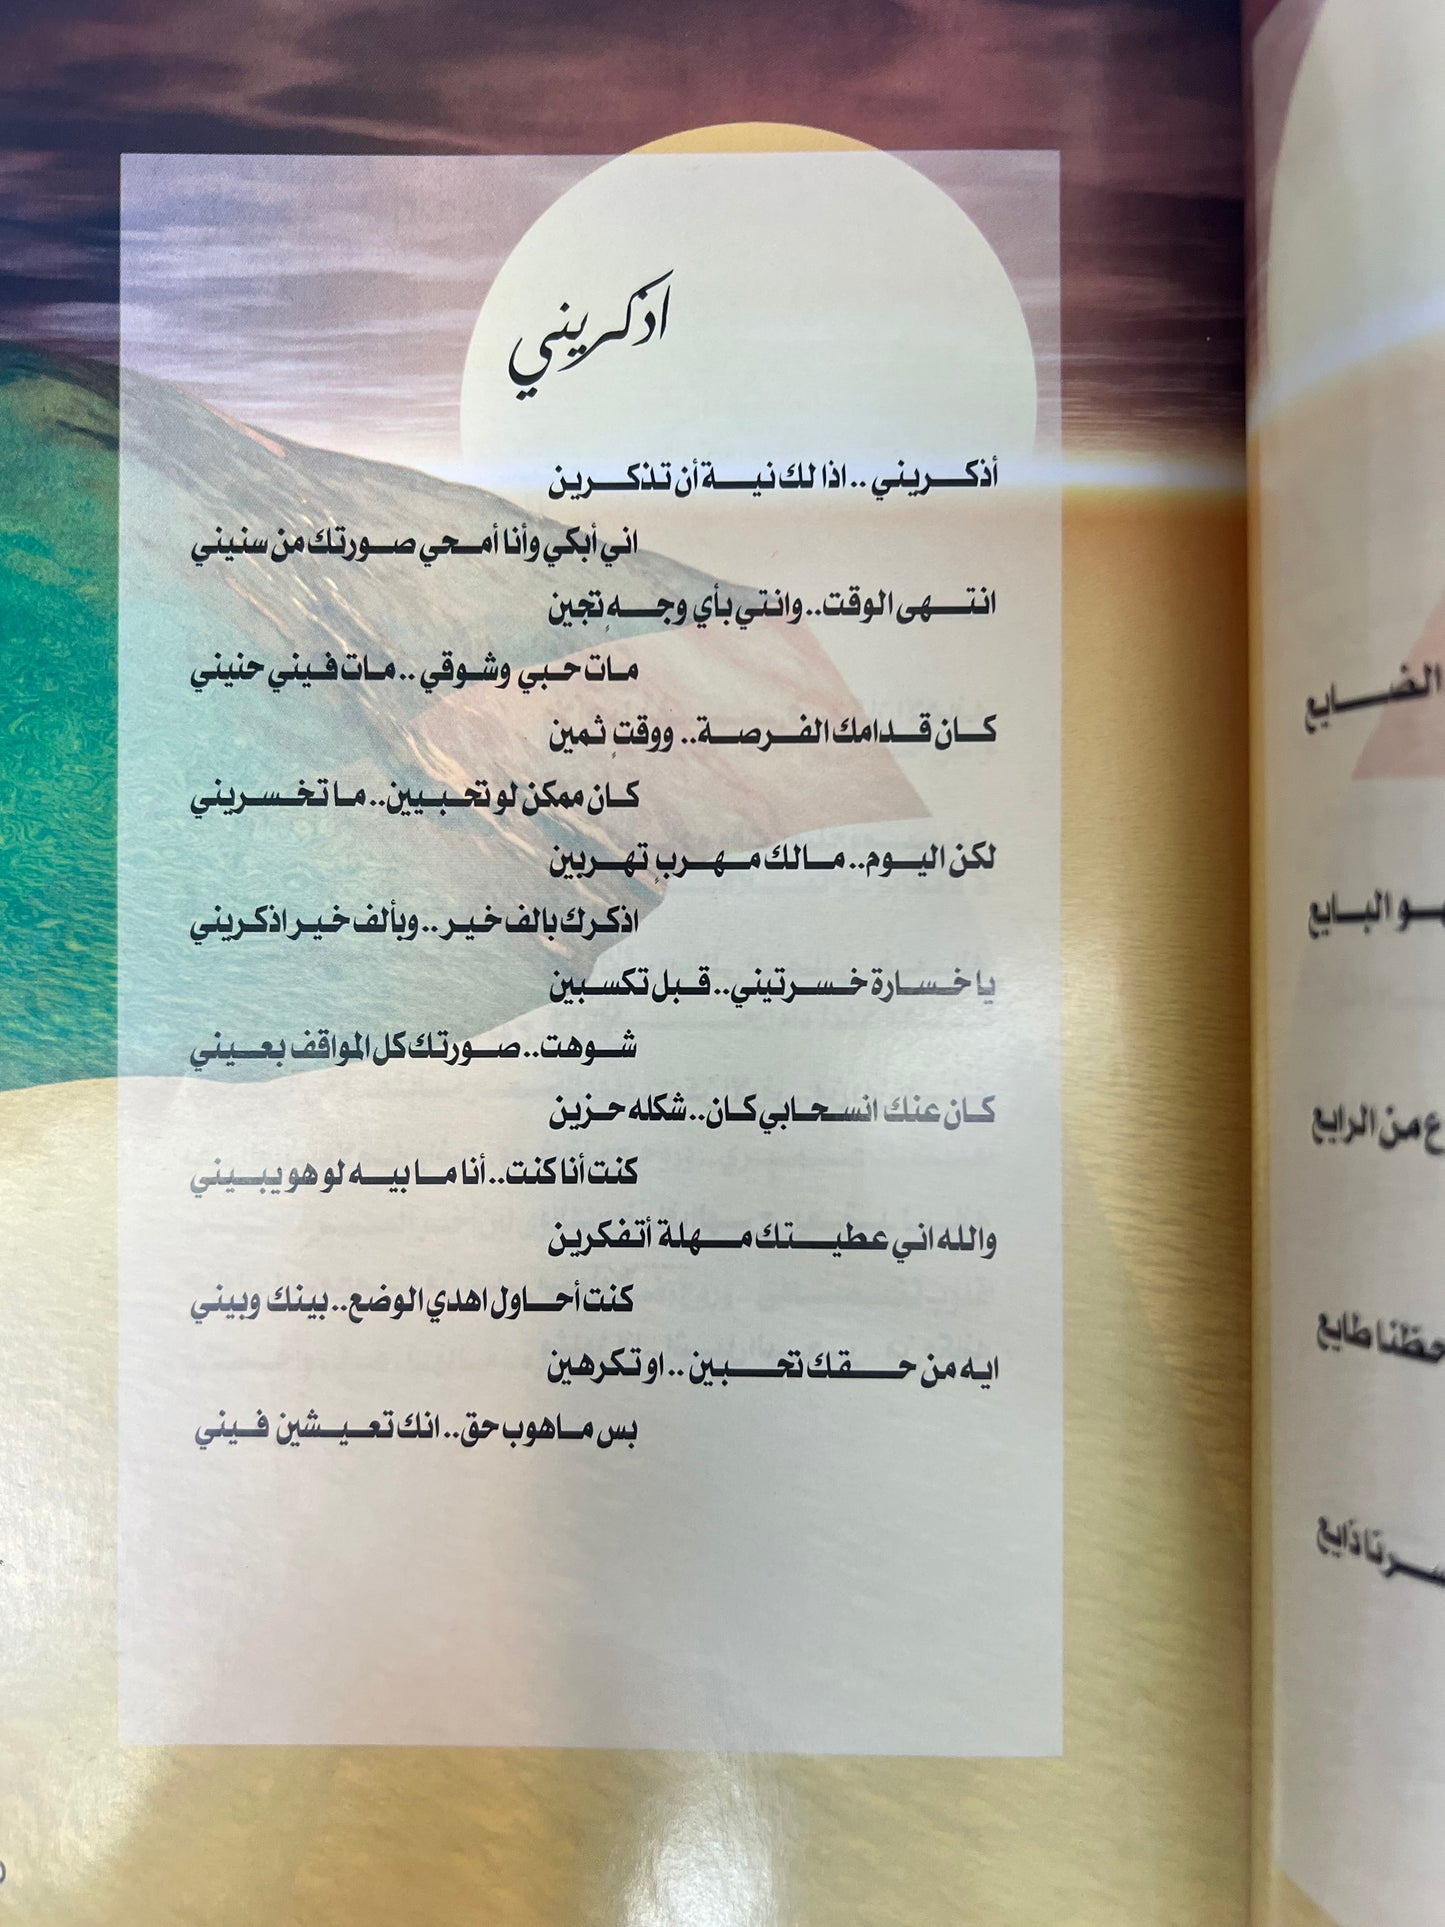 اذكريني
أذكريني .. اذا لك نية أن تذكرين
اني أبكي وأنا أمحي صورتك من سنيني
انتهى الوقت.. وانتي بأي وجهٍ تجين
مات حبي وشوقي .. مات فيني حنيني
كان قدامك الفرصة.. ووقتٍ ثمين
كان ممكن لو تحبيين.. ما تخسريني
لكن اليوم.. مالك مهربٍ تهربين
اذكرك بالف خير .. وبألف خير اذكريني
يا خسارة خسرتيني.. قبل تكسبين
شوهت.. صورتك كل المواقف بعيني
كان عنك انسحابي كان.. شكله حزين
كنت أنا كنت.. أنا ما بيه لو هو يبيني
والله اني عطيتك مهلة أتفكرين
كنت أحاول اهدي الوضع.. بينك وبيني
ايه من حقك تحبين .. او تكرهين
بس ماهوب حق.. انك تعيشين فيني
الضايع
البايع
من الرايع
طايع
ذايع